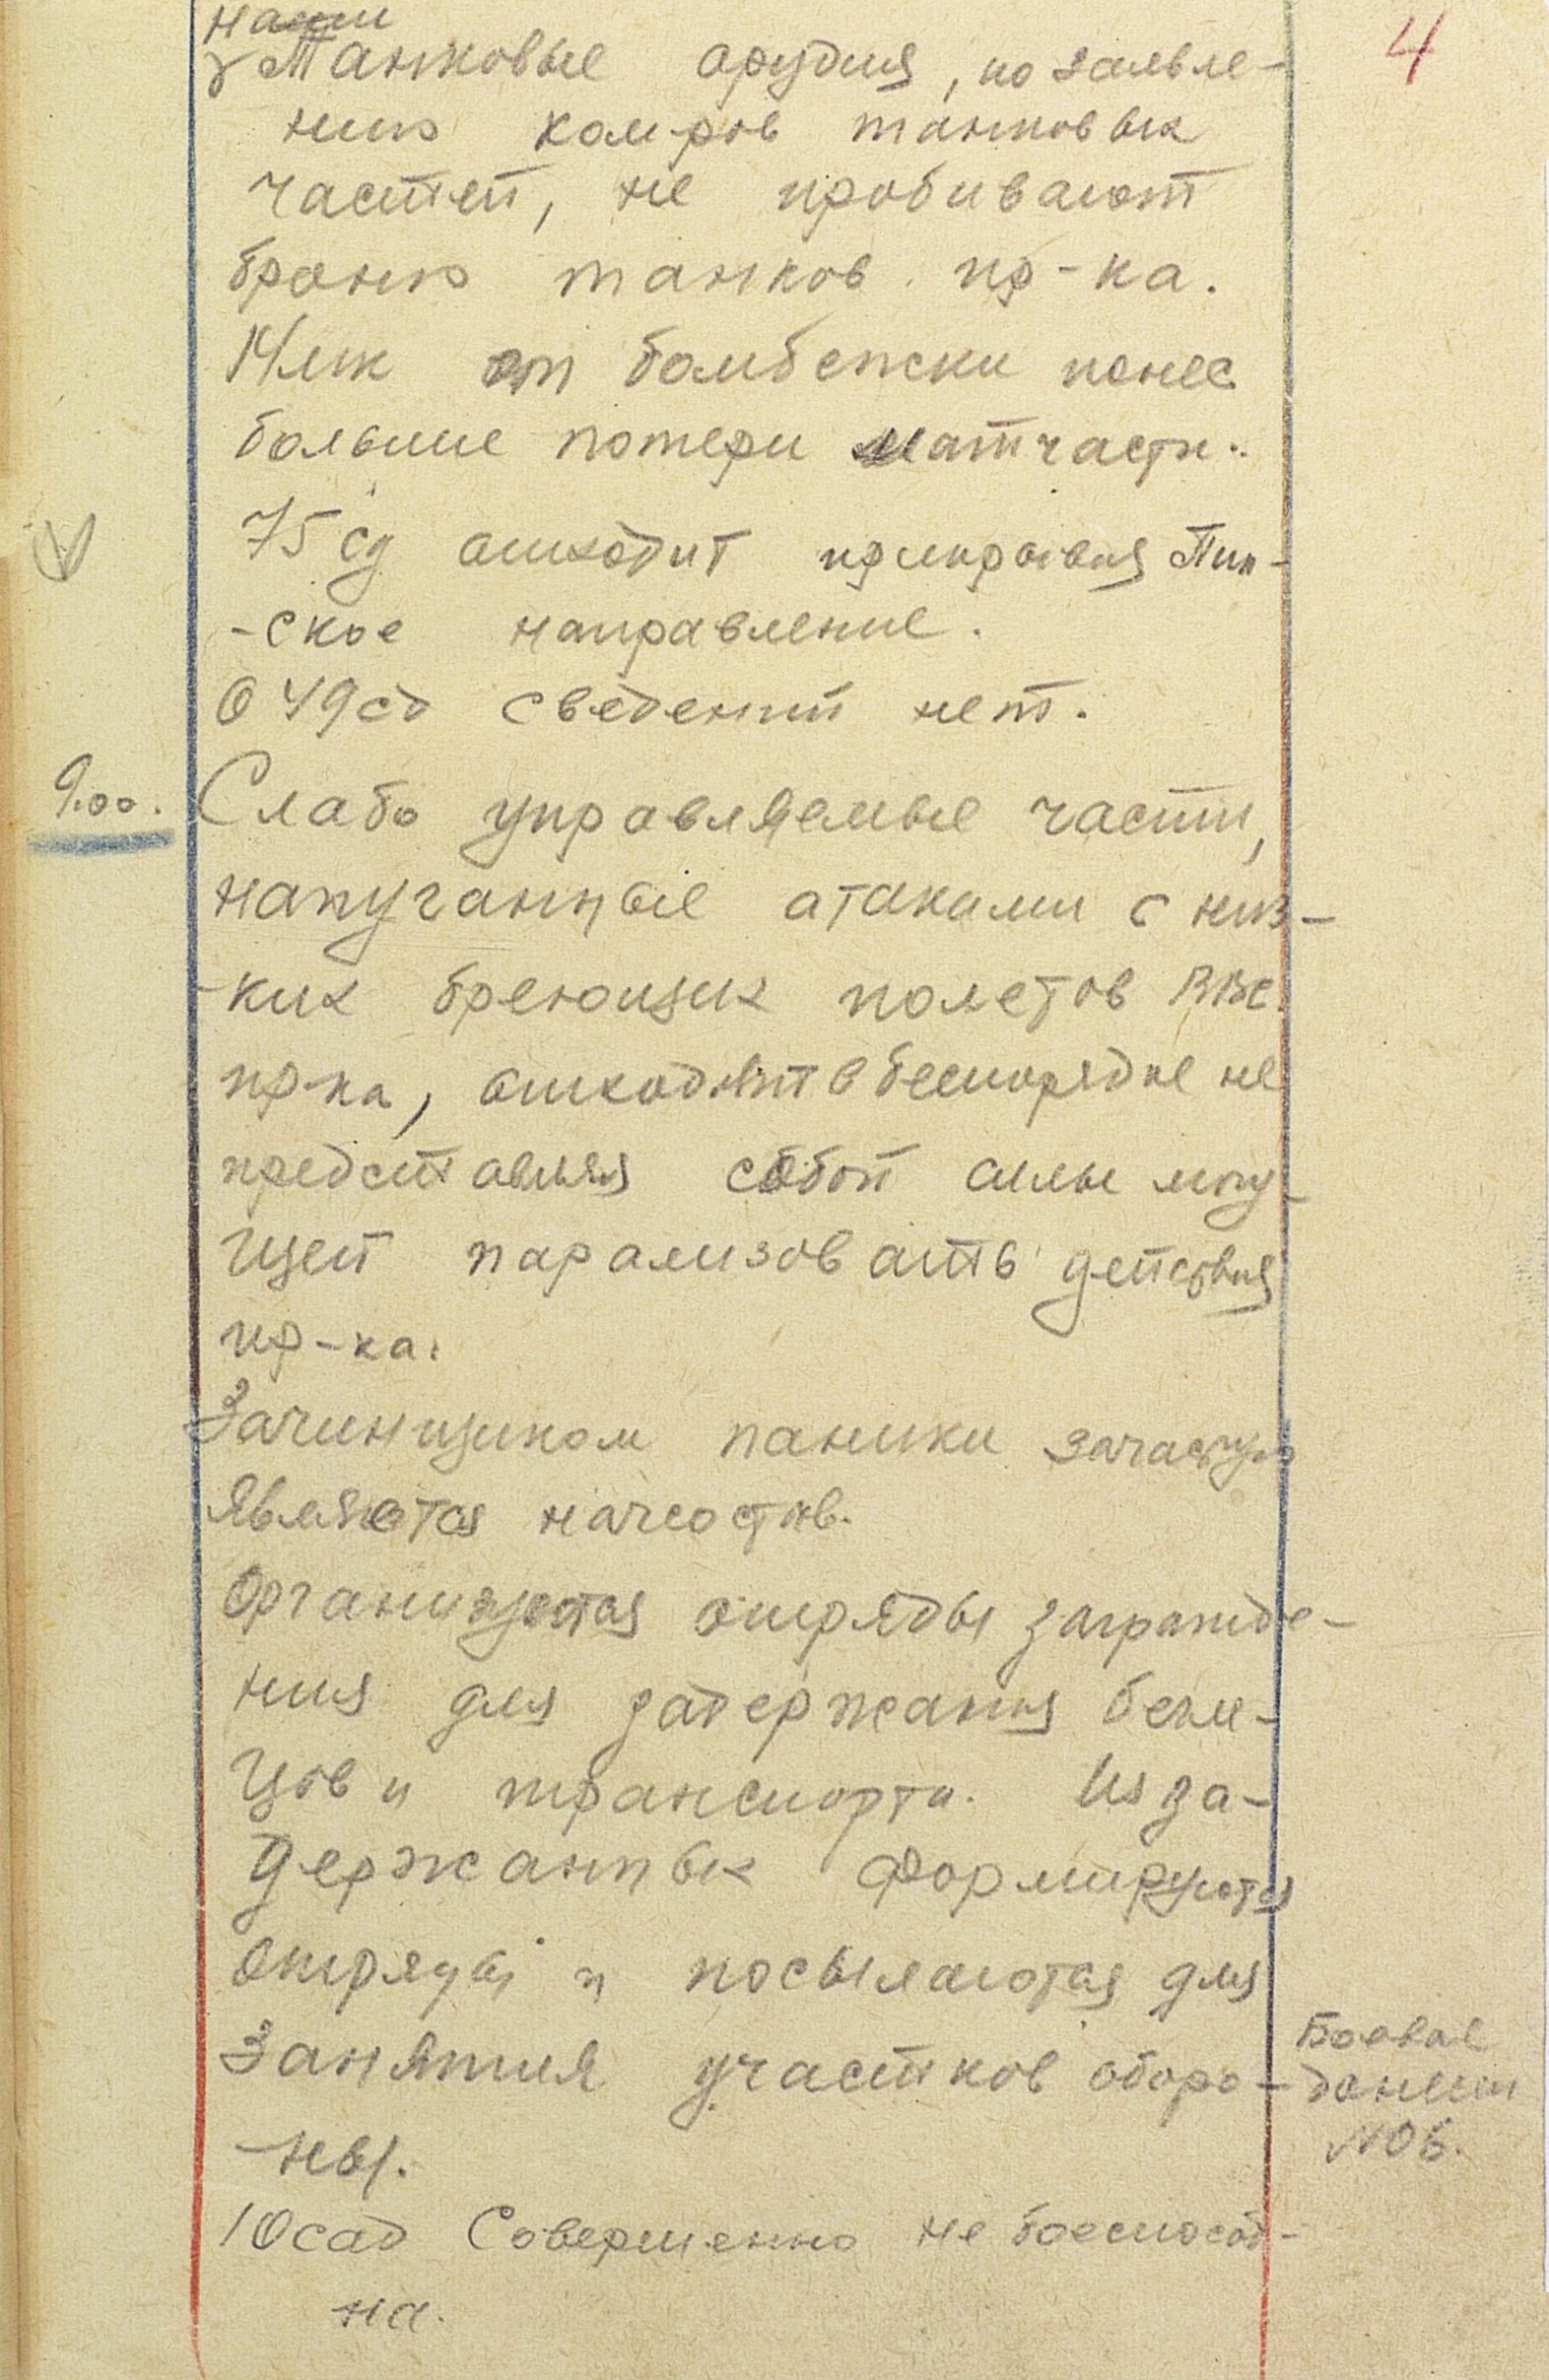 4
наши
Танковые орудия, по заявле-
нию ком-ров танковых
частей, не пробивают
броню танков пр-ка.
14 мк от бомбежки понес
большие потери матчасти.
75 сд отходит прикрывая Пин-
-ское направление.
О 49 сд сведений нет.
9.00. Слабо управляемые части,
напуганные атаками с низ-
-ких бреющих полетов ВВС
пр-ка, отходят в беспорядке не
представляя собой силы могу-
щей парализовать действия
пр-ка.
Зачинщиком паники зачастую
являются начсостав.
Организуются отряды загражде-
ния для задержания бегле-
цов и транспорта. Из за-
держанных формируются
отряды и посылаются для
занятия участков оборо-
-ны.
Боевое
донесен
№ 06.
10 сад совершенно не боеспособ-
на.